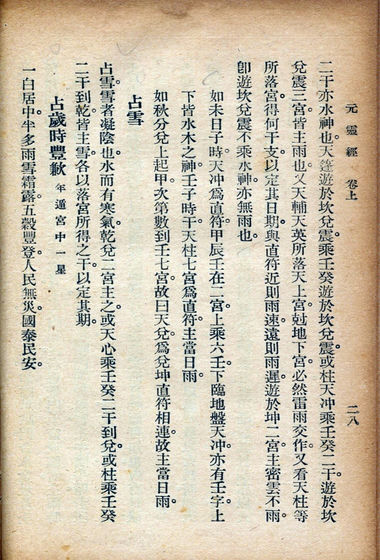 元靈經 卷上
二八
二干亦水神也天蓬遊於坎兌震乘壬癸遊於坎兌震或柱天冲乘壬癸二干遊於坎
兌震三宮皆主雨也又天輔天英所落天上宮尅地下宮必然雷雨交作又看天柱等
所落宮得何干支以定其日期與直符近則雨速遠則雨遲遊於坤二宮主密雲不雨
卽遊坎兌震不乘水神亦無雨也
如未日子時天冲爲直符甲辰壬在二宮上乘六壬下臨地盤天冲亦有壬字上
下皆水木之神壬子時干天柱七宮爲直符主當日雨
如秋分兌上起甲次第數到壬七宮故曰天兌爲兌坤直符相連故主當日雨
占雪
占雪雪者凝陰也水而有寒氣乾兌二宮主之或天心乘壬癸二干到兌或柱乘壬癸
二干到乾皆主雪各以落宮所得之干以定其期
占歲時豐歉 年遁宮中一星
一白居中半多雨雪霜露五穀豐登人民無災國泰民安